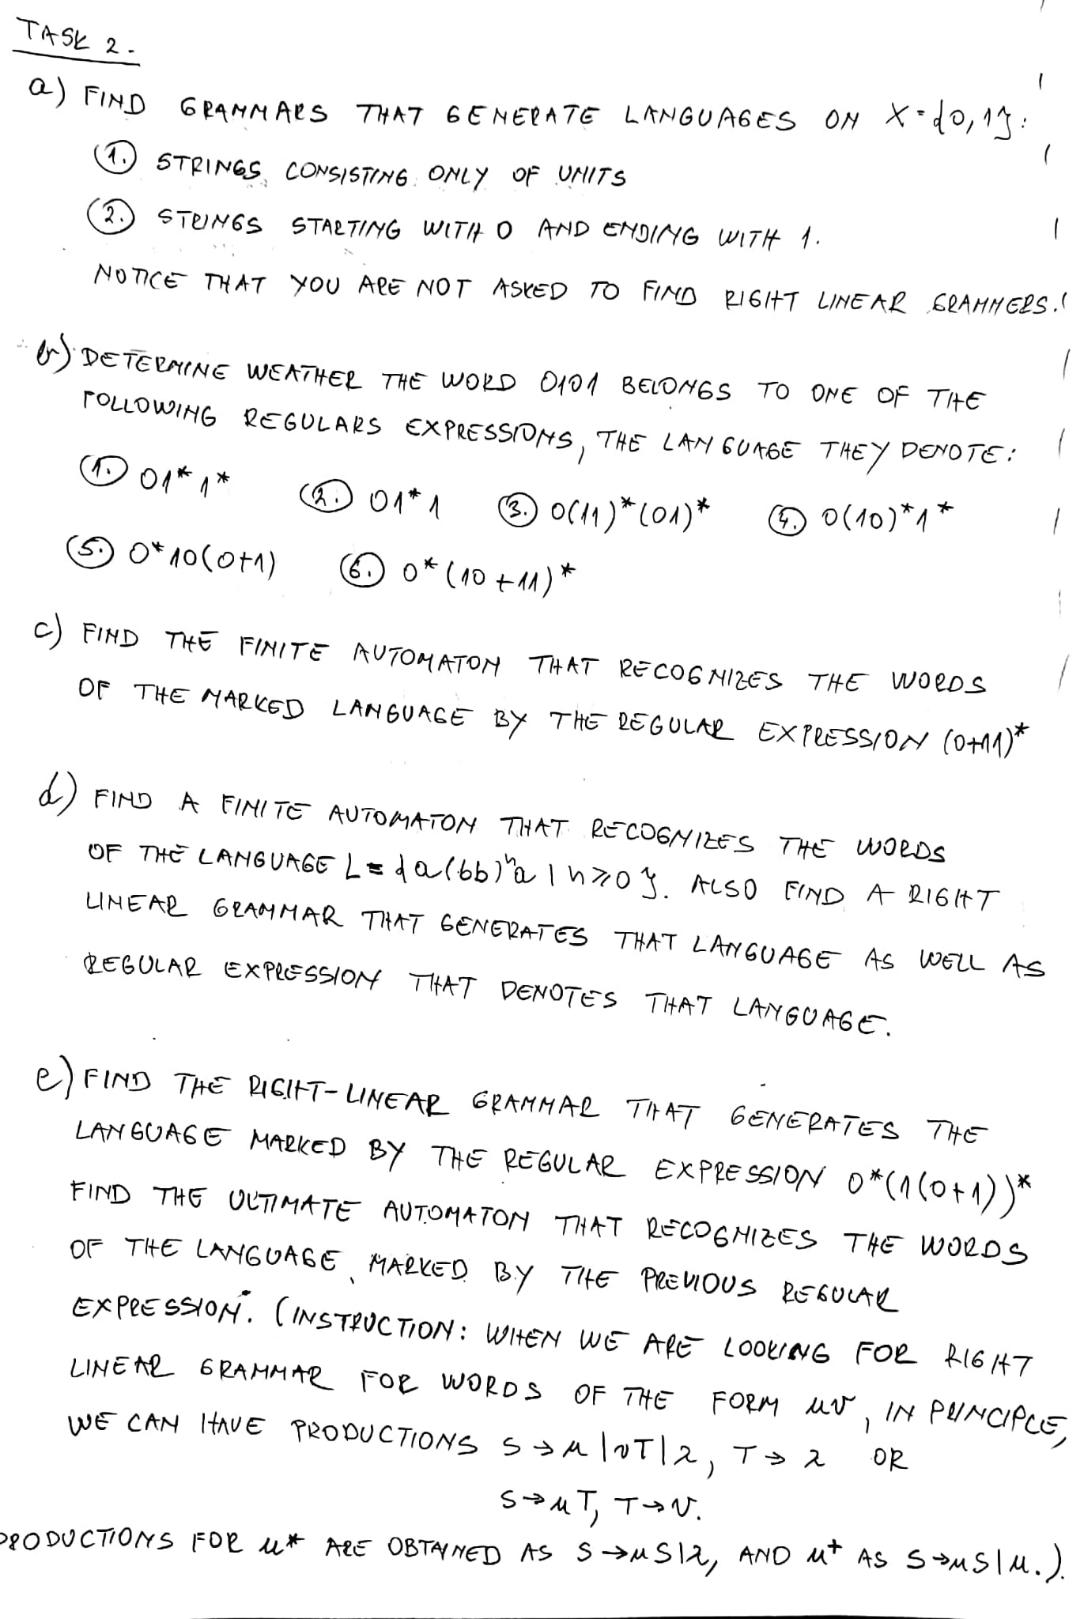 TASK 2.
a) FIND GRAMMARS THAT GENERATE LANGUAGES ON X={0,1}:
1. STRINGS CONSISTING ONLY OF UNITS
2. STRINGS STARTING WITH 0 AND ENDING WITH 1.
NOTICE THAT YOU ARE NOT ASKED TO FIND RIGHT LINEAR GRAMMERS!
b) DETERMINE WEATHER THE WORD 0101 BELONGS TO ONE OF THE
FOLLOWING REGULARS EXPRESSIONS, THE LANGUAGE THEY DENOTE:
1. 01*1* 2. 01*1 3. 0(11)*(01)* 4. 0(10)*1*
5. 0*10(0+1) 6. 0*(10+11)*
c) FIND THE FINITE AUTOMATON THAT RECOGNIZES THE WORDS
OF THE MARKED LANGUAGE BY THE REGULAR EXPRESSION (0+11)*
d) FIND A FINITE AUTOMATON THAT RECOGNIZES THE WORDS
OF THE LANGUAGE L={a(bb)ⁿa | n≥0}. ALSO FIND A RIGHT
LINEAR GRAMMAR THAT GENERATES THAT LANGUAGE AS WELL AS
REGULAR EXPRESSION THAT DENOTES THAT LANGUAGE.
e) FIND THE RIGHT-LINEAR GRAMMAR THAT GENERATES THE
LANGUAGE MARKED BY THE REGULAR EXPRESSION 0*(1(0+1))*
FIND THE ULTIMATE AUTOMATON THAT RECOGNIZES THE WORDS
OF THE LANGUAGE MARKED BY THE PREVIOUS REGULAR
EXPRESSION. (INSTRUCTION: WHEN WE ARE LOOKING FOR RIGHT
LINEAR GRAMMAR FOR WORDS OF THE FORM uv, IN PRINCIPLE,
WE CAN HAVE PRODUCTIONS S→u|vT|λ, T→λ OR
S→uT, T→v.
PRODUCTIONS FOR u* ARE OBTAYNED AS S→uS|λ, AND u⁺ AS S→uS|u.).